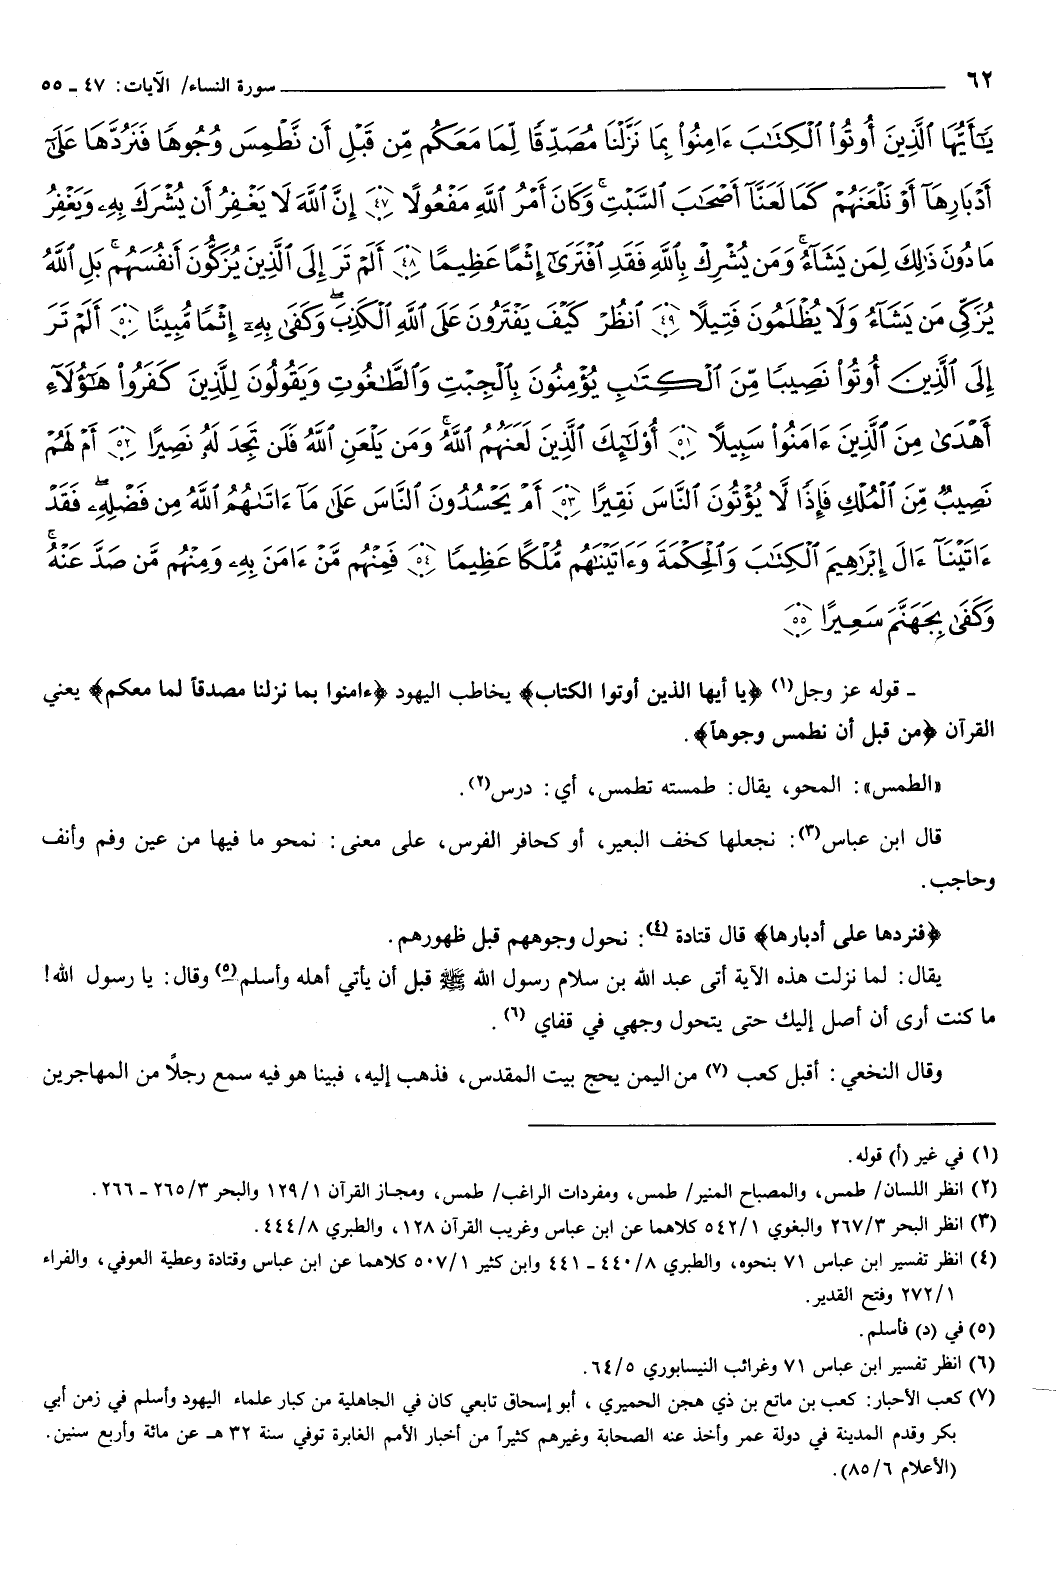 ٦٢ سورة النساء/ الآيات: ٤٧ ـ ٥٥
يَٰٓأَيُّهَا ٱلَّذِينَ أُوتُوا۟ ٱلْكِتَٰبَ ءَامِنُوا۟ بِمَا نَزَّلْنَا مُصَدِّقًا لِّمَا مَعَكُم مِّن قَبْلِ أَن نَّطْمِسَ وُجُوهًا فَنَرُدَّهَا عَلَىٰٓ
أَدْبَارِهَآ أَوْ نَلْعَنَهُمْ كَمَا لَعَنَّآ أَصْحَٰبَ ٱلسَّبْتِ ۚ وَكَانَ أَمْرُ ٱللَّهِ مَفْعُولًا ٤٧ إِنَّ ٱللَّهَ لَا يَغْفِرُ أَن يُشْرَكَ بِهِۦ وَيَغْفِرُ
مَا دُونَ ذَٰلِكَ لِمَن يَشَآءُ ۚ وَمَن يُشْرِكْ بِٱللَّهِ فَقَدِ ٱفْتَرَىٰٓ إِثْمًا عَظِيمًا ٤٨ أَلَمْ تَرَ إِلَى ٱلَّذِينَ يُزَكُّونَ أَنفُسَهُم ۚ بَلِ ٱللَّهُ
يُزَكِّى مَن يَشَآءُ وَلَا يُظْلَمُونَ فَتِيلًا ٤٩ ٱنظُرْ كَيْفَ يَفْتَرُونَ عَلَى ٱللَّهِ ٱلْكَذِبَ ۖ وَكَفَىٰ بِهِۦٓ إِثْمًا مُّبِينًا ٥٠ أَلَمْ تَرَ
إِلَى ٱلَّذِينَ أُوتُوا۟ نَصِيبًا مِّنَ ٱلْكِتَٰبِ يُؤْمِنُونَ بِٱلْجِبْتِ وَٱلطَّٰغُوتِ وَيَقُولُونَ لِلَّذِينَ كَفَرُوا۟ هَٰٓؤُلَآءِ
أَهْدَىٰ مِنَ ٱلَّذِينَ ءَامَنُوا۟ سَبِيلًا ٥١ أُو۟لَٰٓئِكَ ٱلَّذِينَ لَعَنَهُمُ ٱللَّهُ ۖ وَمَن يَلْعَنِ ٱللَّهُ فَلَن تَجِدَ لَهُۥ نَصِيرًا ٥٢ أَمْ لَهُمْ
نَصِيبٌ مِّنَ ٱلْمُلْكِ فَإِذًا لَّا يُؤْتُونَ ٱلنَّاسَ نَقِيرًا ٥٣ أَمْ يَحْسُدُونَ ٱلنَّاسَ عَلَىٰ مَآ ءَاتَىٰهُمُ ٱللَّهُ مِن فَضْلِهِۦ ۖ فَقَدْ
ءَاتَيْنَآ ءَالَ إِبْرَٰهِيمَ ٱلْكِتَٰبَ وَٱلْحِكْمَةَ وَءَاتَيْنَٰهُم مُّلْكًا عَظِيمًا ٥٤ فَمِنْهُم مَّنْ ءَامَنَ بِهِۦ وَمِنْهُم مَّن صَدَّ عَنْهُ ۚ
وَكَفَىٰ بِجَهَنَّمَ سَعِيرًا ٥٥
ـ قوله عز وجل(١) ﴿يا أيها الذين أوتوا الكتاب﴾ يخاطب اليهود ﴿ءامنوا بما نزلنا مصدقاً لما معكم﴾ يعني
القرآن ﴿من قبل أن نطمس وجوهاً﴾.
«الطمس»: المحو، يقال: طمسته تطمس، أي: درس(٢).
قال ابن عباس(٣): نجعلها كخف البعير، أو كحافر الفرس، على معنى: نمحو ما فيها من عين وفم وأنف
وحاجب.
﴿فنردها على أدبارها﴾ قال قتادة(٤): نحول وجوههم قبل ظهورهم.
يقال: لما نزلت هذه الآية أتى عبد الله بن سلام رسول الله ﷺ قبل أن يأتي أهله وأسلم(٥) وقال: يا رسول الله!
ما كنت أرى أن أصل إليك حتى يتحول وجهي في قفاي(٦).
وقال النخعي: أقبل كعب(٧) من اليمن يحج بيت المقدس، فذهب إليه، فبينا هو فيه سمع رجلاً من المهاجرين
(١) في غير (أ) قوله.
(٢) انظر اللسان/ طمس، والمصباح المنير/ طمس، ومفردات الراغب/ طمس، ومجاز القرآن ١٢٩/١ والبحر ٢٦٥/٣ ـ ٢٦٦.
(٣) انظر البحر ٢٦٧/٣ والبغوي ٥٤٢/١ كلاهما عن ابن عباس وغريب القرآن ١٢٨، والطبري ٤٤٤/٨.
(٤) انظر تفسير ابن عباس ٧١ بنحوه، والطبري ٤٤٠/٨ ـ ٤٤١ وابن كثير ٥٠٧/١ كلاهما عن ابن عباس وقتادة وعطية العوفي، والفراء
٢٧٢/١ وفتح القدير.
(٥) في (د) فأسلم.
(٦) انظر تفسير ابن عباس ٧١ وغرائب النيسابوري ٦٤/٥.
(٧) كعب الأحبار: كعب بن ماتع بن ذي هجن الحميري، أبو إسحاق تابعي كان في الجاهلية من كبار علماء اليهود وأسلم في زمن أبي
بكر وقدم المدينة في دولة عمر وأخذ عنه الصحابة وغيرهم كثيراً من أخبار الأمم الغابرة توفي سنة ٣٢ هـ عن مائة وأربع سنين.
(الأعلام ٨٥/٦).